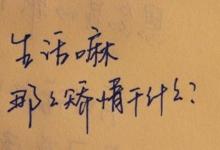 生活嘛
那么矫情干什么?